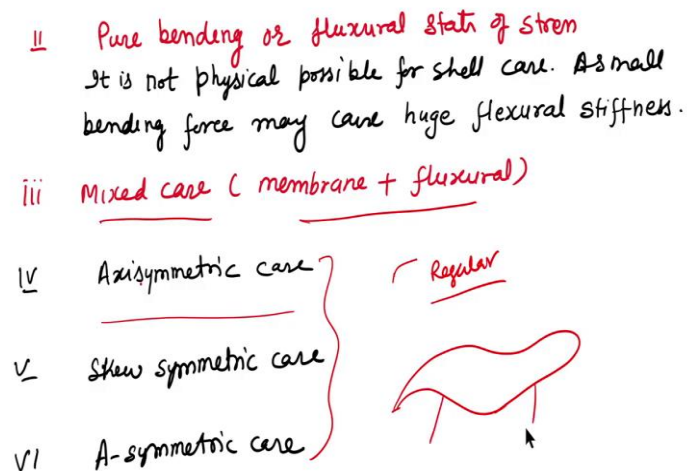 II Pure bending or fluxural state of stress
It is not physical possible for shell case. A small
bending force may cause huge flexural stiffness.
iii Mixed case ( membrane + fluxural)
IV Axisymmetric case
Regular
V Skew symmetric case
VI A-symmetric case